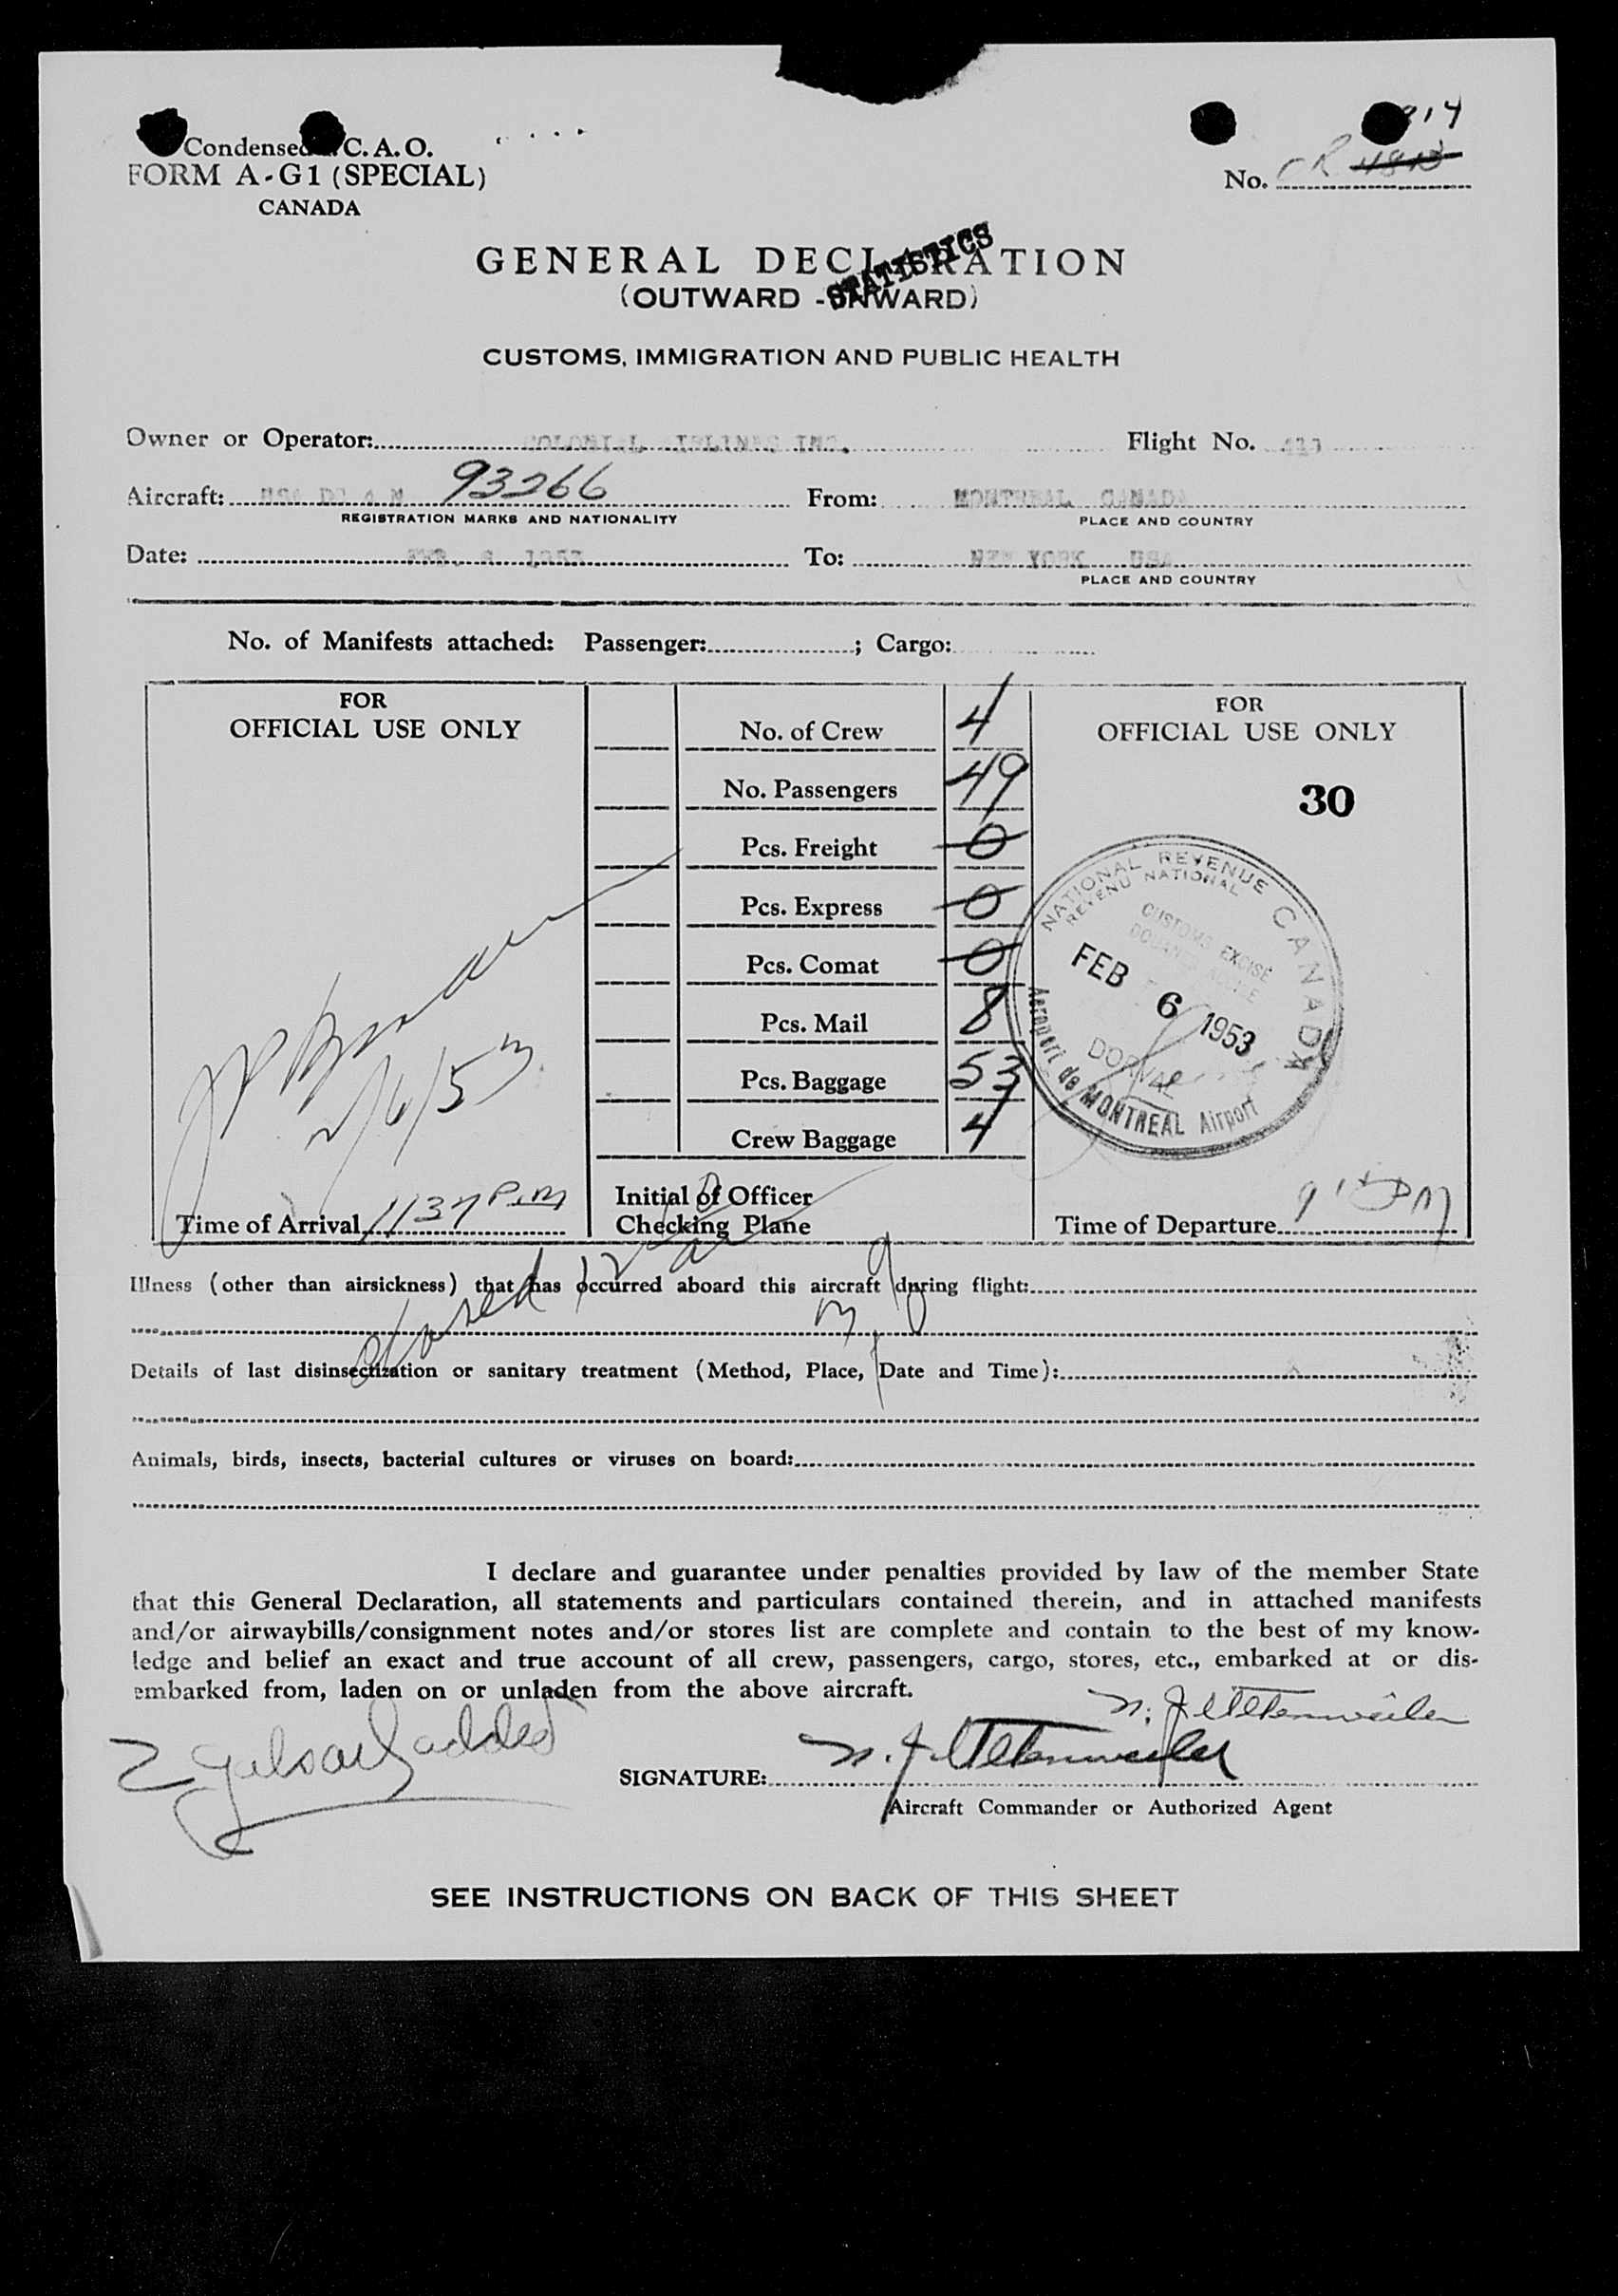 Condensed C. A. O.
FORM A-G1 (SPECIAL)
CANADA
No. CR 4813
GENERAL DECLARATION
STATISTICS
(OUTWARD - INWARD)
CUSTOMS, IMMIGRATION AND PUBLIC HEALTH
Owner or Operator: COLONIAL AIRLINES INC. Flight No.
Aircraft: USA DC 4 N 93266 From: MONTREAL CANADA
REGISTRATION MARKS AND NATIONALITY PLACE AND COUNTRY
Date: FEB. 6 1953 To: NEW YORK USA
PLACE AND COUNTRY
No. of Manifests attached: Passenger: ; Cargo:
FOR
OFFICIAL USE ONLY
2/6/53
Time of Arrival 1137 P.M
No. of Crew 4
No. Passengers 49
Pcs. Freight 0
Pcs. Express 0
Pcs. Comat 0
Pcs. Mail 8
Pcs. Baggage 53
Crew Baggage 4
Initial of Officer
Checking Plane
FOR
OFFICIAL USE ONLY
30
NATIONAL REVENUE CANADA
REVENU NATIONAL
CUSTOMS EXCISE
FEB 6 1953
DORVAL
Aeroport de MONTREAL Airport
Time of Departure 9 PM
Illness (other than airsickness) that has occurred aboard this aircraft during flight:
Details of last disinsectization or sanitary treatment (Method, Place, Date and Time):
Animals, birds, insects, bacterial cultures or viruses on board:
I declare and guarantee under penalties provided by law of the member State
that this General Declaration, all statements and particulars contained therein, and in attached manifests
and/or airwaybills/consignment notes and/or stores list are complete and contain to the best of my know-
ledge and belief an exact and true account of all crew, passengers, cargo, stores, etc., embarked at or dis-
embarked from, laden on or unladen from the above aircraft.
SIGNATURE:
Aircraft Commander or Authorized Agent
SEE INSTRUCTIONS ON BACK OF THIS SHEET